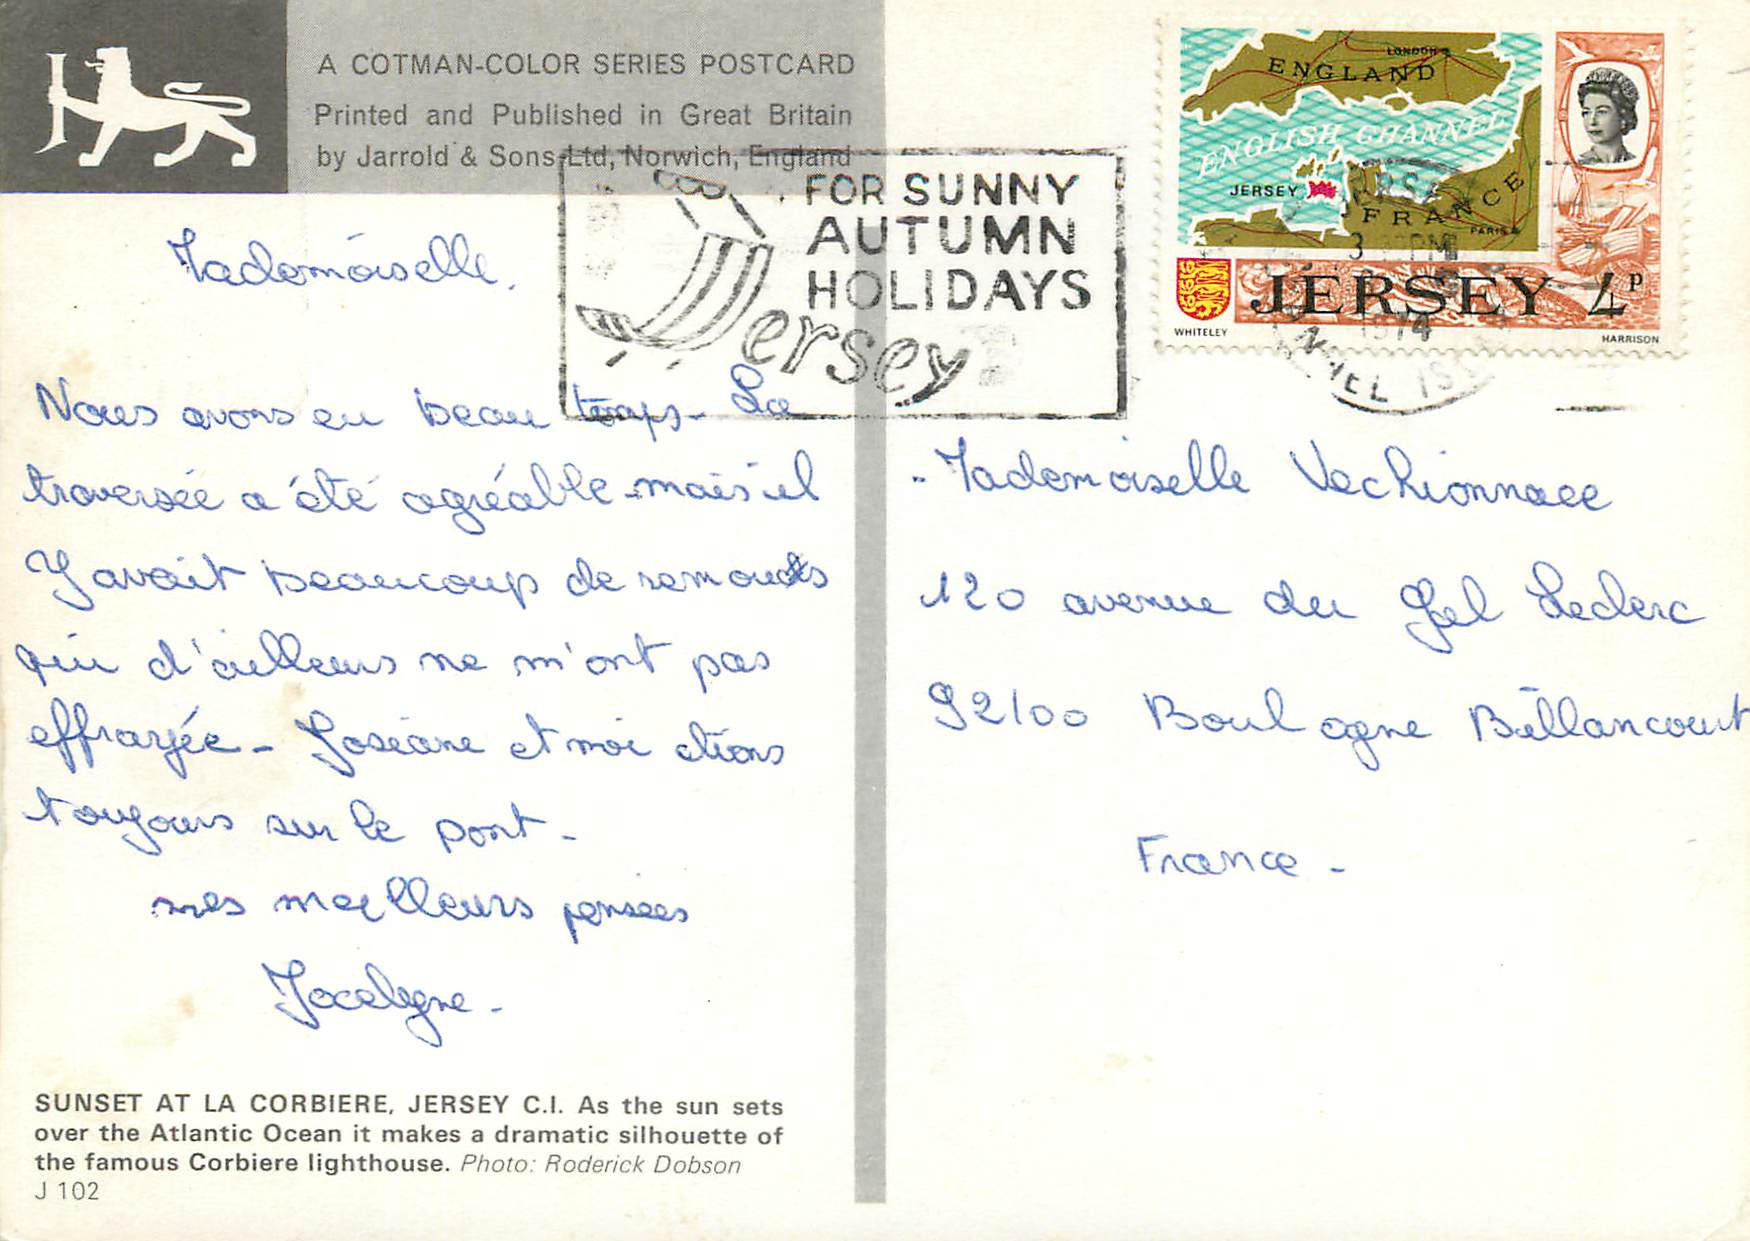 A COTMAN-COLOR SERIES POSTCARD
Printed and Published in Great Britain
by Jarrold & Sons Ltd, Norwich, England
FOR SUNNY
AUTUMN
HOLIDAYS
Jersey
LONDON
ENGLAND
ENGLISH CHANNEL
JERSEY
FRANCE
PARIS
JERSEY 4p
WHITELEY
HARRISON
1974
Mademoiselle.
Nous avons eu beau temps - La
traversée a été agréable mais il
y avait beaucoup de remous
qui d'ailleurs ne m'ont pas
effrayée - Josiane et moi étions
toujours sur le pont -
mes meilleurs pensées
Jocelyne -
Mademoiselle
120 avenue du Gel Leclerc
92100 Boulogne Billancourt
France -
SUNSET AT LA CORBIERE, JERSEY C.I. As the sun sets
over the Atlantic Ocean it makes a dramatic silhouette of
the famous Corbiere lighthouse. Photo: Roderick Dobson
J 102